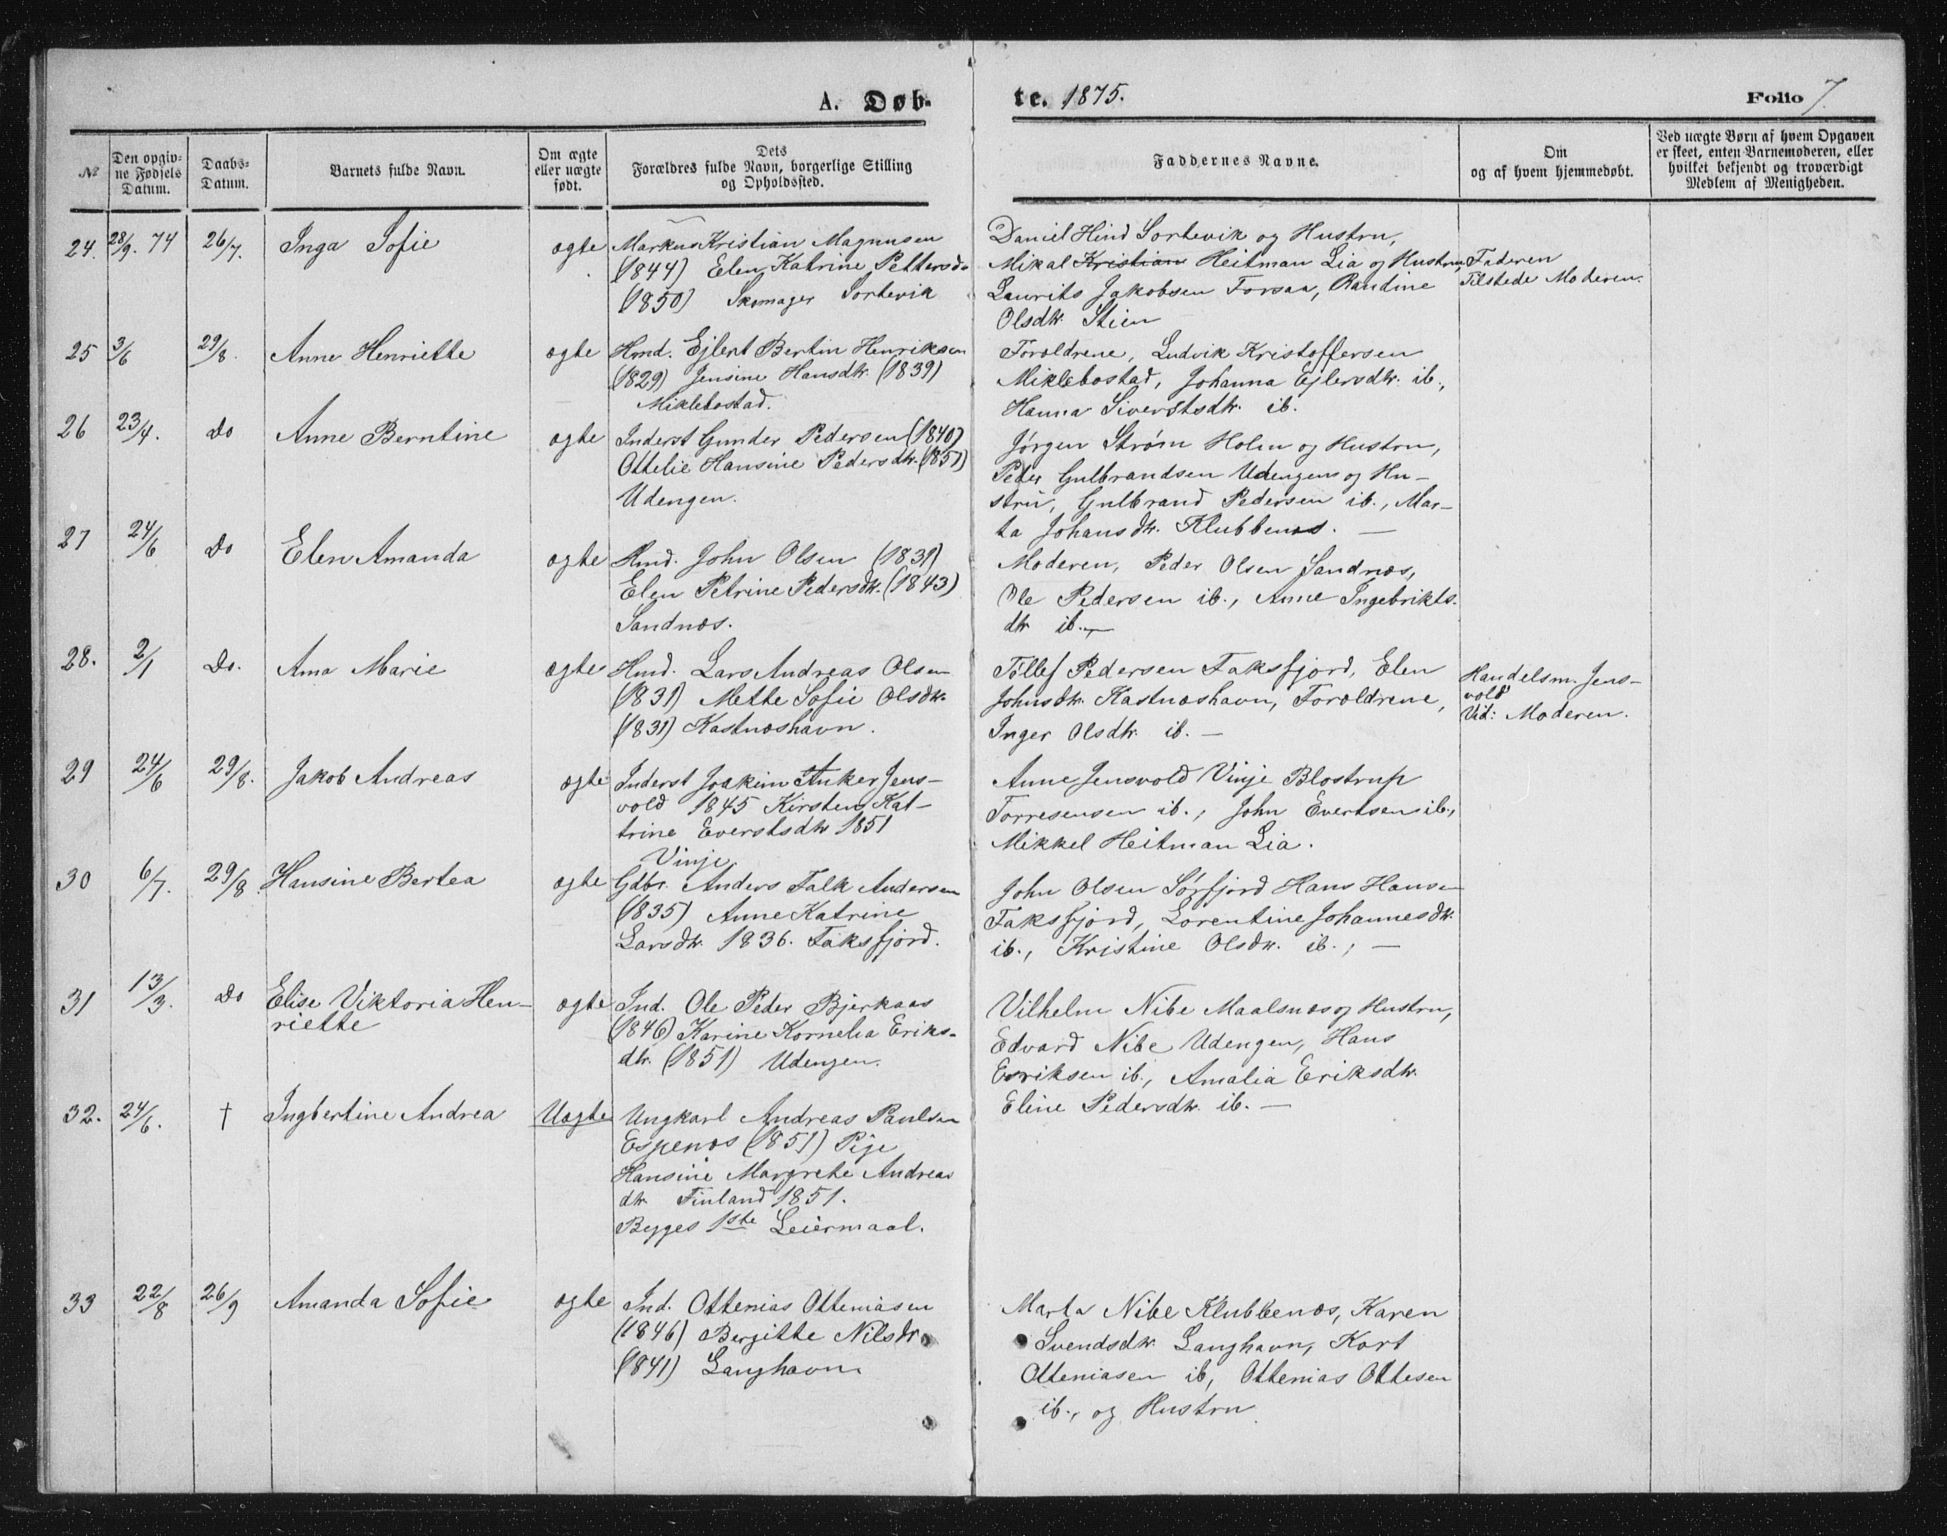 A. Døb-
te. 1875.
Folio 7.
No
Den opgiv-
ne Fødsels
Datum.
Daabs-
Datum.
Barnets fulde Navn.
Om ægte
eller uægte
født.
Dets
Forældres fulde Navn, borgerlige Stilling
og Opholdssted.
Faddernes Navne.
Om
og af hvem hjemmedøbt.
Ved uægte Børn af hvem Opgaven
er skeet, enten Barnemoderen, eller
hvilket bekjendt og troværdigt
Medlem af Menigheden.
24. 28/9. 74 26/7. Inga Sofie ægte
Markus Kristian Magnusen
(1844) Elen Katrine Pettersd.
(1850) Skomager Sortevik
Daniel Hind Sortevik og Hustru,
Mikal Kristian Heitman Lia og Hustru,
Laurits Jakobsen Forsaa, Randine
Olsdtr. Stien
Faderen
Tilstede Moderen.
25 3/6 29/8. Anne Henriette ægte
Hmd. Ejlert Bertin Henriksen
(1829) Jensine Hansdtr. (1839)
Miklebostad.
Forældrene, Ludvik Kristoffersen
Miklebostad, Johanna Ejlersdtr. ib.,
Hanna Siverstsdtr. ib.
26 23/4. Do Anne Berntine ægte
Inderst Gunder Pedersen (1840)
Ottelie Hansine Pedersdtr. (1851)
Udengen.
Jørgen Strøm Holm og Hustru,
Peder Gulbrandsen Udengen og Hu-
stru, Gulbrand Pedersen ib., Mar-
ta Johansdtr. Klubbenes. —
27 24/6 Do Elen Amanda ægte
Hmd. John Olsen (1839)
Elen Petrine Pedersdtr. (1843)
Sandnæs.
Moderen, Peder Olsen Sandnæs,
Ole Pedersen ib., Anne Ingebrikts.
dtr ib. —
28. 2/1 Do. Ana Marie ægte
Hmd. Lars Andreas Olsen
(1831) Mette Sofie Olsdtr.
(1831) Kastnæshavn.
Tollef Pedersen Faksfjord, Elen
Johnsdtr. Kastnæshavn, Forældrene,
Inger Olsdtr. ib. —
Handelsm. Jens-
vold
Vid: Moderen.
29 24/6 29/8. Jakob Andreas ægte
Inderst Joakim Anker Jens-
vold 1845 Kirsten Kat-
trine Everstsdtr 1851
Vinje
Anne Jensvold Vinje Blostrup
Torresensen ib., John Evertsen ib.,
Mikkel Heitman Lia.
30 6/7. 29/8. Hansine Bertea ægte
Gdbr. Anders Falk Andersen
(1835) Anne Katrine
Larsdtr. 1836. Faksfjord.
John Olsen Sørfjord Hans Hansen
Faksfjord, Lorentine Johannesdtr.
ib., Kristine Olsdtr. ib., —
31 13/3. Do Elise Viktoria Hen-
riette ægte
Ind. Ole Peder Bjerkaas
(1846) Karine Kornelia Eriks-
dtr. (1851) Udengen.
Vilhelm Nibe Maalsnæs og Hustru,
Edvard Nibe Udengen, Hans
Eriksen ib., Amalia Eriksdtr.
Eline Pedersdtr. ib. —
32. 24/6. † Ingbertine Andrea Uægte
Ungkarl Andreas Paulsen
Espenæs (1851) Pige
Hansine Margrete Andreas
dtr. Finland 1851.
Begges 1ste Leiermaal.
33 22/8 26/9 Amanda Sofie ægte
Ind. Ottenias Otteniasen
(1846) Bergitte Nilsdtr.
(1841) Langhavn
Marta Nibe Klubbenæs, Karen
Svendsdtr. Langhavn, Kort
Otteniasen ib, Ottenias Ottesen
ib., og Hustru